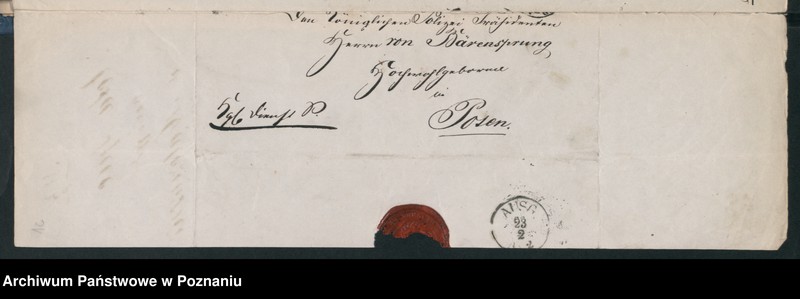 den Königlichen Polizei Präsidenten
Herrn von Bärensprung
Hochwohlgeboren
in
Posen.
Kgl Dienst S.
AUSG
23
2
Archiwum Państwowe w Poznaniu